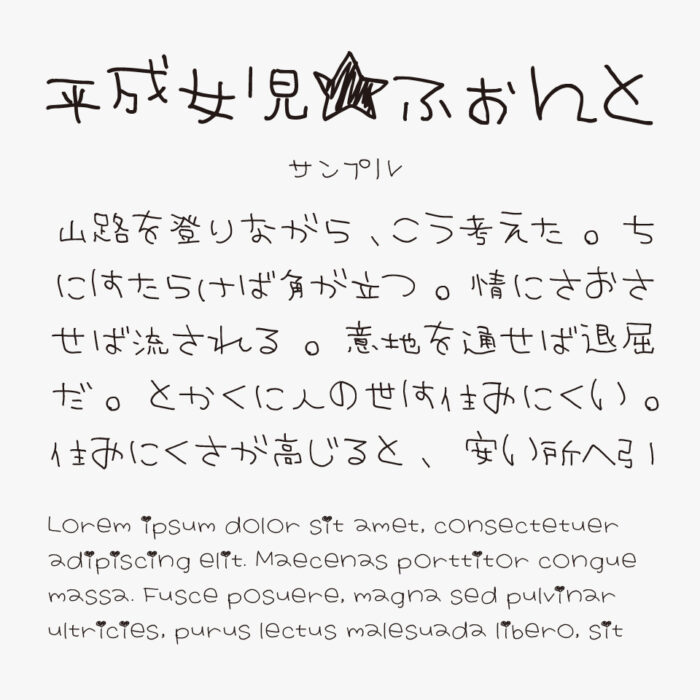 平成女児★ふぉんと
サンプル
山路を登りながら、こう考えた。ち
にはたらけば角が立つ。情にさおさ
せば流される。意地を通せば退屈
だ。とかくに人の世は住みにくい。
住みにくさが高じると、安い所へ引
Lorem ipsum dolor sit amet, consectetuer
adipiscing elit. Maecenas porttitor congue
massa. Fusce posuere, magna sed pulvinar
ultricies, purus lectus malesuada libero, sit